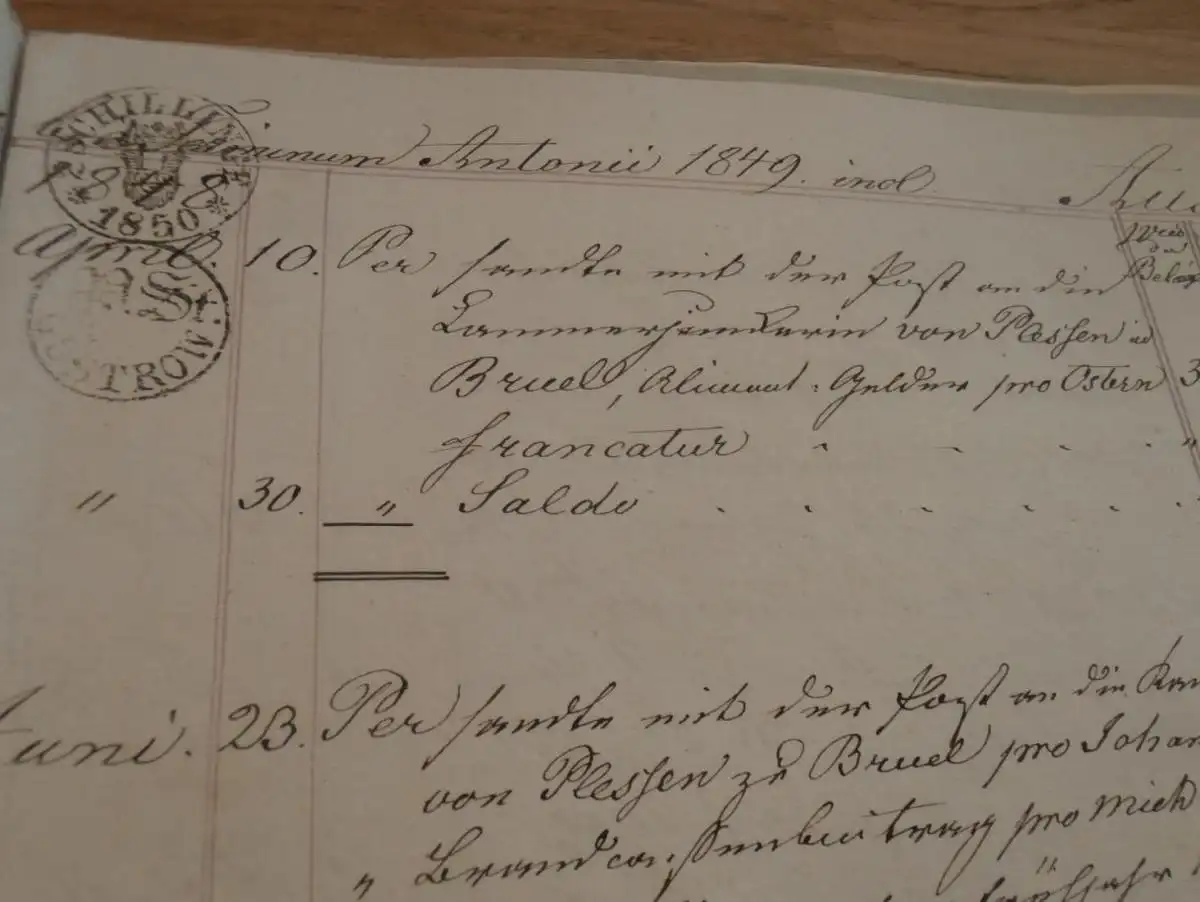 2 SCHILLINGE
1850
Terminum Antonii 1849. incl.
1848
April. 10. Per sandte mit der Post an die
Kammerjunkerin von Plessen zu
Bruel, Aliment-Gelder pro Ostern 3
francatur
" 30. " Saldo
Juni. 23. Per sandte mit der Post an die Kam
von Plessen zu Bruel pro Johan
" Brandcassenbeitrag pro Mich
Frühjahr